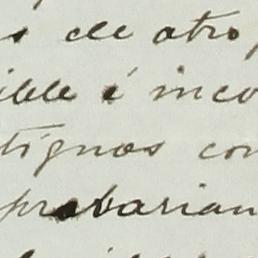 s de atro
ible é inco
tignos con
probarian